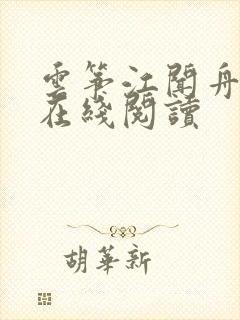 雲箏江聞舟
在綫閱讀
胡華新